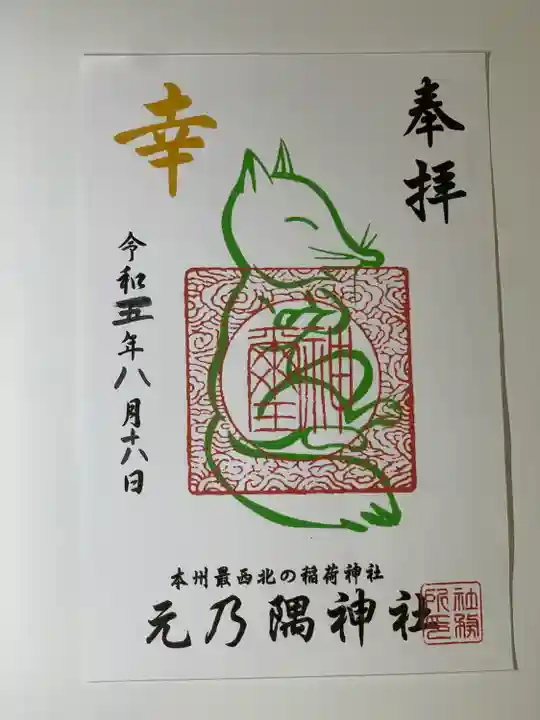 奉拝
幸
令和五年八月十八日
本州最西北の稲荷神社
元乃隅神社
社務所印